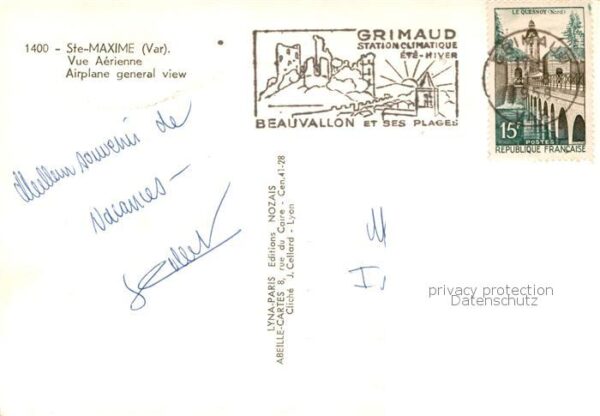 1400 - Ste-MAXIME (Var).
Vue Aérienne
Airplane general view
GRIMAUD
STATION CLIMATIQUE
ÉTÉ-HIVER
BEAUVALLON ET SES PLAGES
LE QUESNOY (Nord)
15F
POSTES
REPUBLIQUE FRANÇAISE
Meilleur souvenir de
Vacances -
LYNA-PARIS Editions NOZAIS
ABEILLE-CARTES 8, rue du Caire - Cen. 41-28
Cliché J. Cellard - Lyon
M
privacy protection
Datenschutz